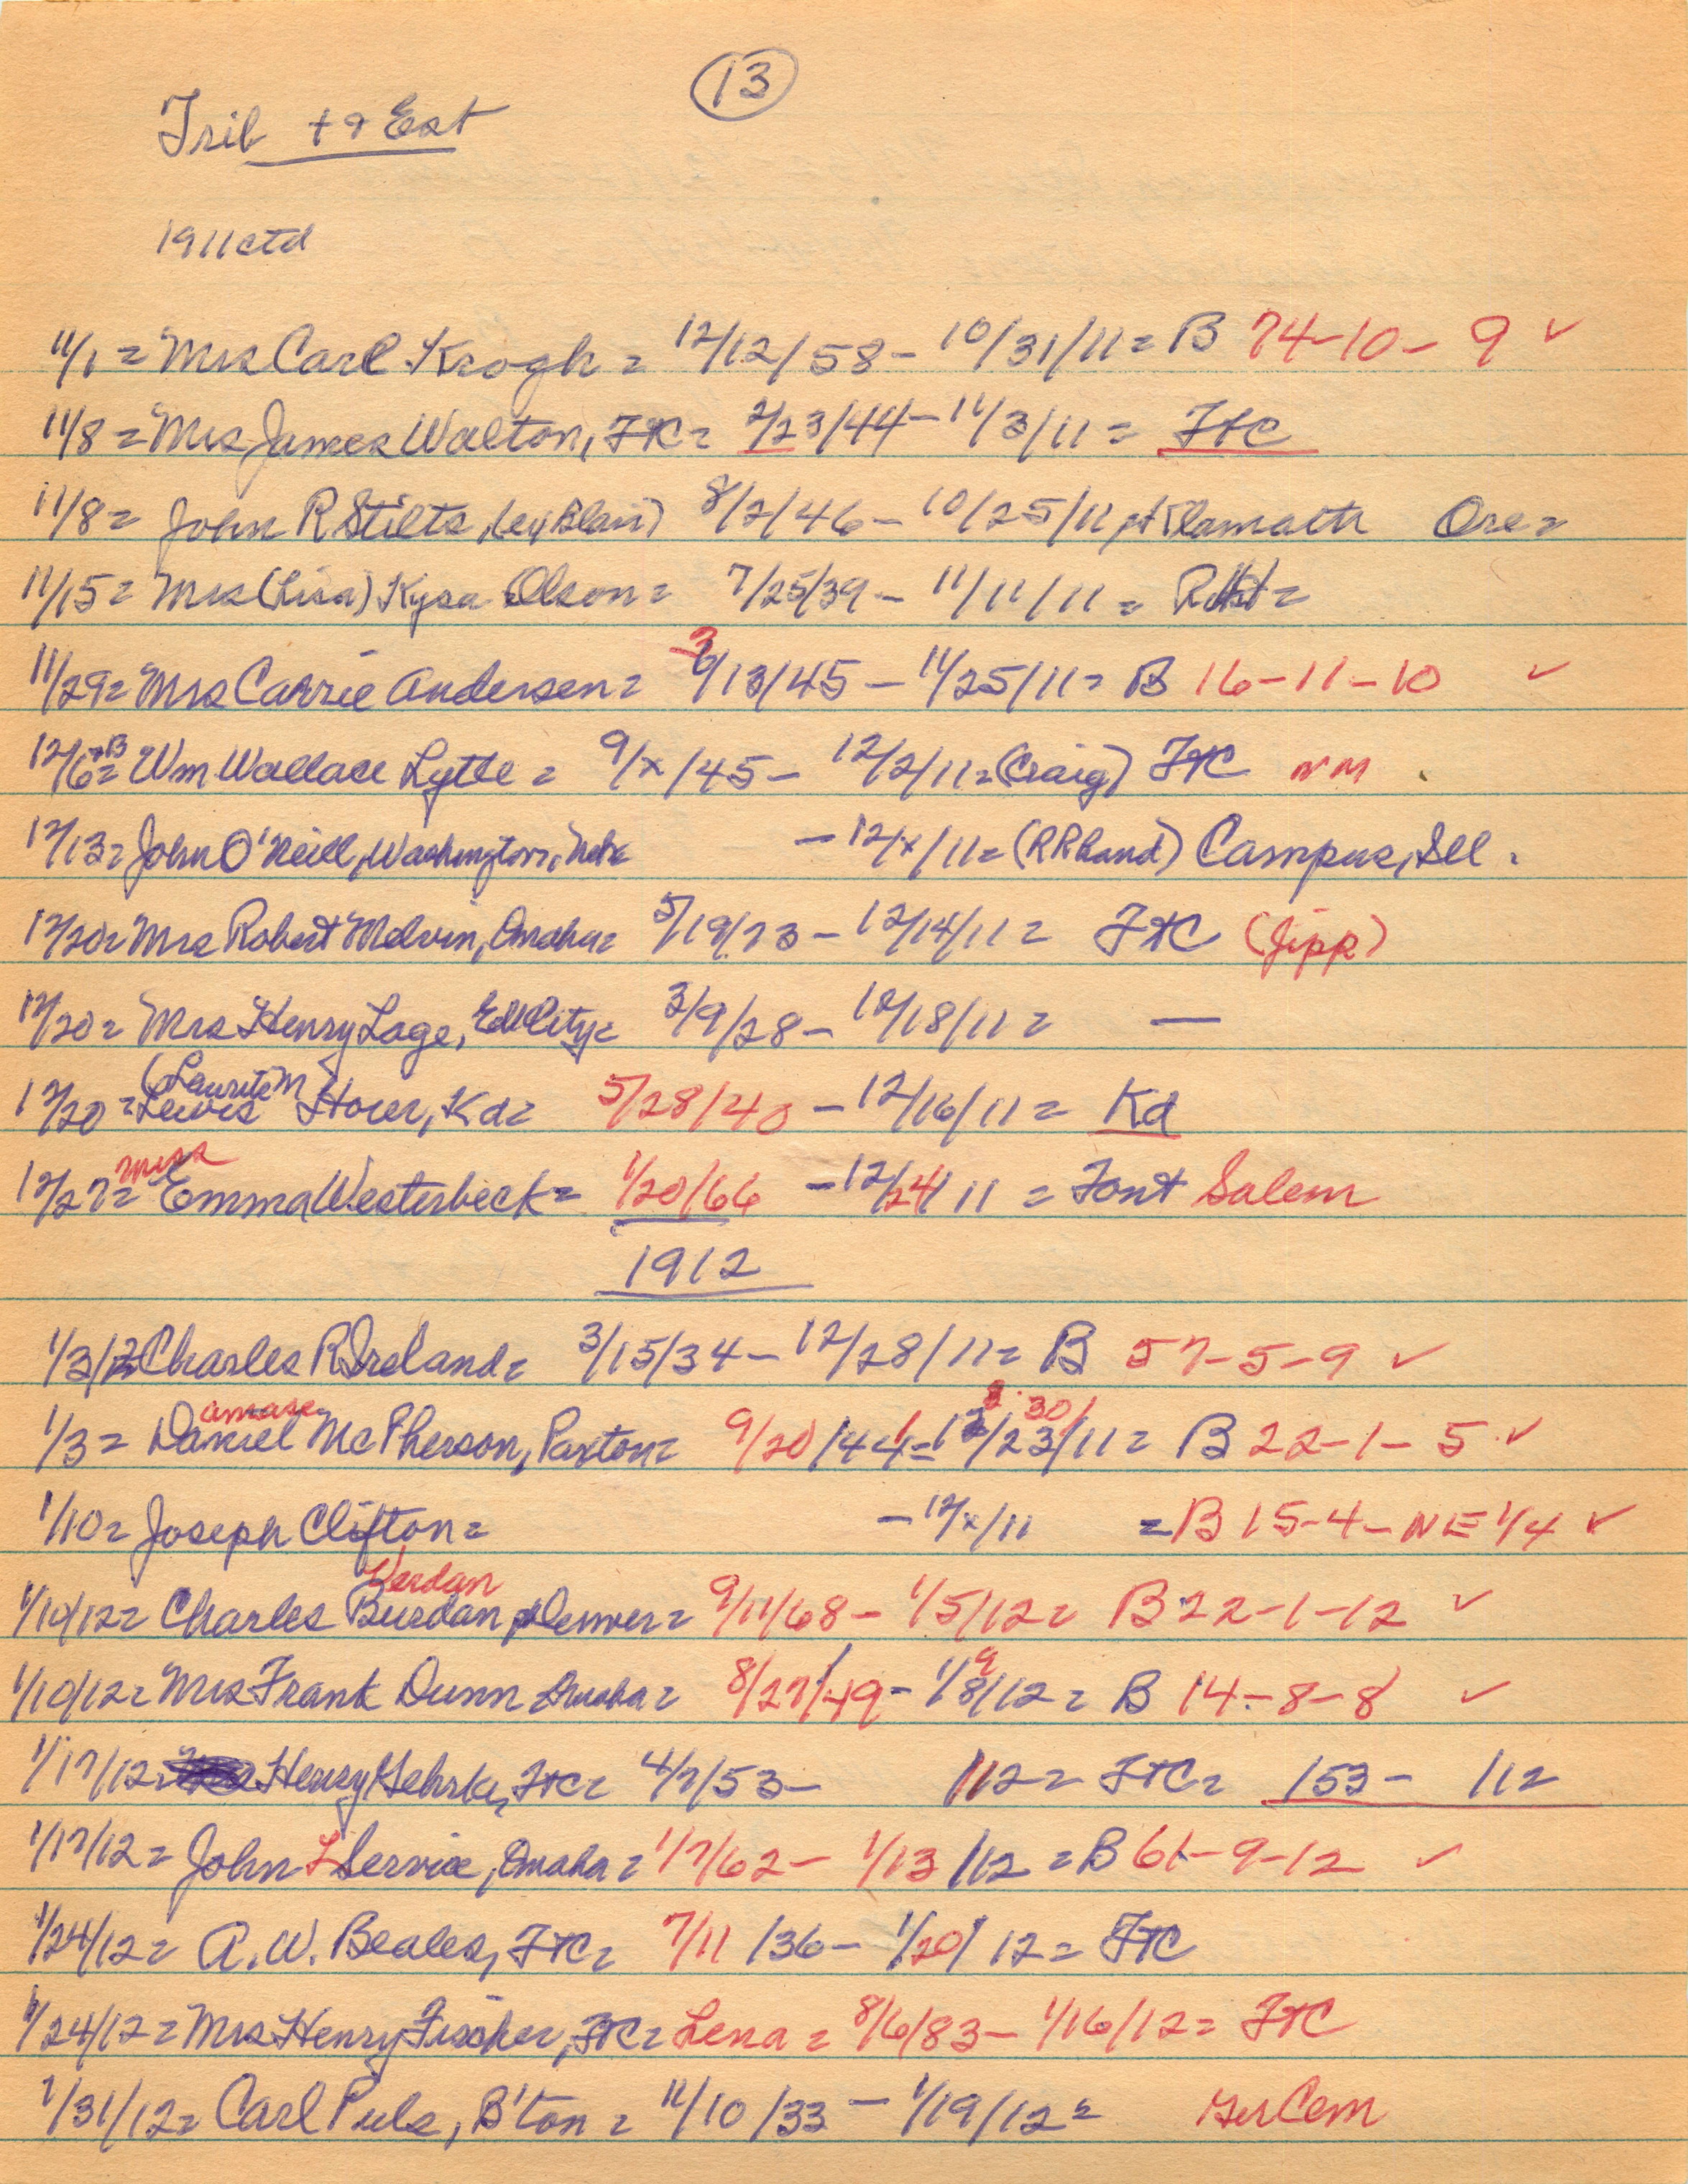 13
Trib + 9 Ext
1911 ctd
11/1 = Mrs Carl Krogh = 12/12/58 - 10/31/11 = B 74-10-9 ✓
11/8 = Mrs James Walton, FtC = 2/23/44 - 11/3/11 = FtC
11/8 = John R Stilts, (ex Blair) 8/2/46 - 10/25/11, Klamath Ore =
11/15 = Mrs (Lisa) Kysa Olson = 7/25/39 - 11/11/11 =
11/29 = Mrs Carrie Andersen = 3/13/45 - 11/25/11 = B 16-11-10 ✓
12/6 = Wm Wallace Lytle = 9/x/45 - 12/2/11 = (Craig) FtC NM
12/13 = John O'Neill, Washington, Neb - 12/x/11 = (RR hand) Campus, Ill.
12/20 = Mrs Robert Melvin, Omaha = 5/19/73 - 12/14/11 = FtC (Jipp)
12/20 = Mrs Henry Lage, Elk City = 3/9/28 - 12/18/11 = —
(Laurite M
12/20 = Lewis Hover, Kd = 5/28/40 - 12/16/11 = Kd
12/27 = Miss Emma Westerbeck = 1/20/66 - 12/24/11 = Font Salem
1912
1/3/12 = Charles R Ireland = 3/15/34 - 12/28/11 = B 57-5-9 ✓
amase 30
1/3 = Daniel McPherson, Paxton = 9/20/44 - 12/23/11 = B 22-1-5 ✓
1/10 = Joseph Clifton = - 12/x/11 = B 15-4-NE 1/4 ✓
Verdan
1/10/12 = Charles Burdan, Denver = 9/11/68 - 1/5/12 = B 22-1-12 ✓
9
1/10/12 = Mrs Frank Dunn Omaha = 8/27/49 - 1/8/12 = B 14-8-8 ✓
1/17/12 = Henry Gehrke, FtC = 4/7/53 - /12 = FtC = 153 - 112
1/17/12 = John L Service, Omaha = 1/7/62 - 1/13/12 = B 61-9-12 ✓
1/24/12 = A. W. Beales, FtC = 7/11/36 - 1/20/12 = FtC
1/24/12 = Mrs Henry Fischer, FtC = Lena = 8/6/83 - 1/16/12 = FtC
1/31/12 = Carl Puls, B'ton = 11/10/33 - 1/19/12 = Ger Cem